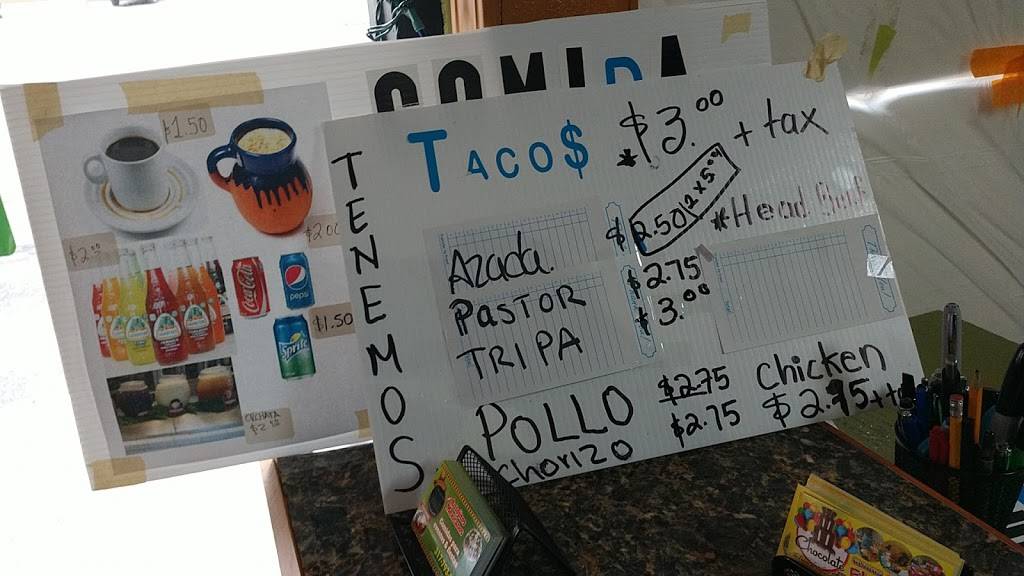 COMIDA
TENEMOS
TACO$ $3.00 + tax
*Head
Azada. $2.50 (2 x 5.00)
PASTOR $2.75
TRIPA $3.00
POLLO $2.75 Chicken
Chorizo $2.75 $2.75++
$1.50
$2.00
$2.00
Coca-Cola
pepsi
Sprite
$1.50
Chocolate